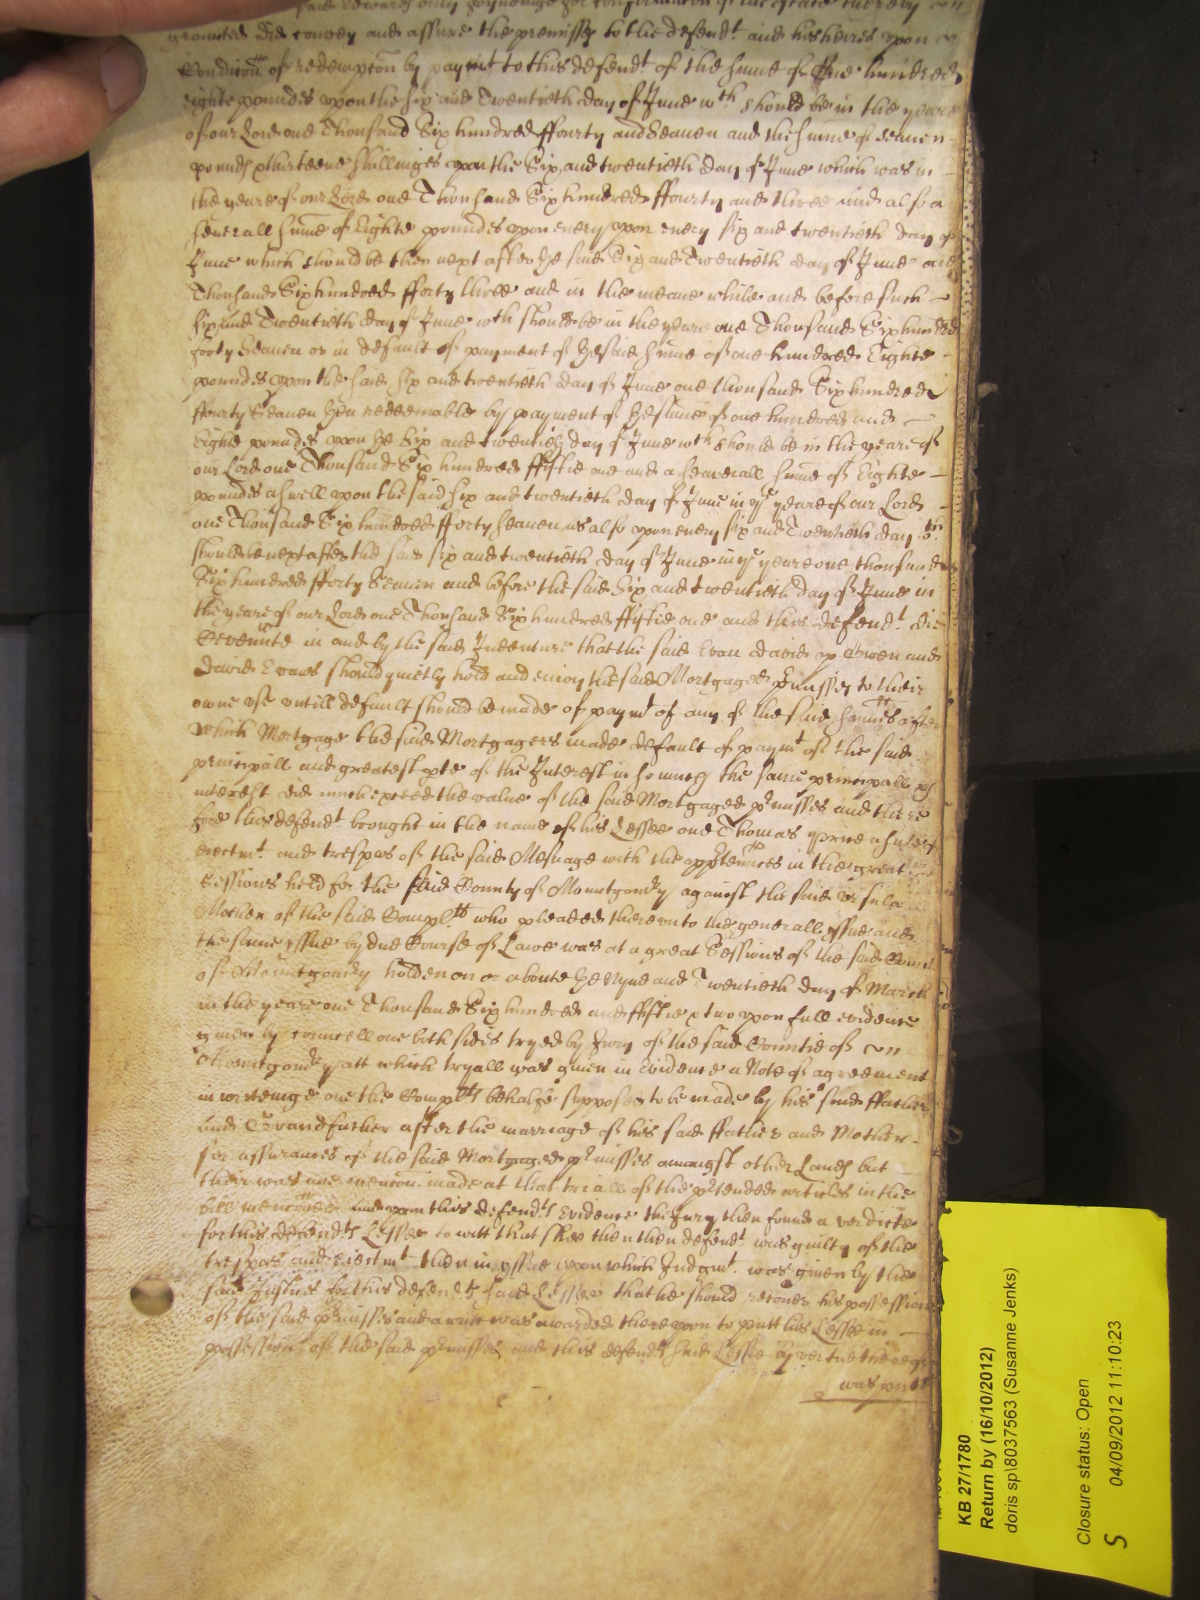 said Edward only joyneinge for confirmation of the estate thereby
graunted did convey and assure the premisses to the defendt and his heires upon
Condicon of redempcon by paymt to this defendt of the sume of One hundred
eighte poundes upon the six and Twentieth day of June wth should be in the yeare
of our Lord one Thousand Six hundred ffourty and Seaven and the sume of seaven
pounds thirteene shillinges upon the Six and twentieth day of June which was in
the yeare of our Lord one Thousand Six hundred ffourty and three and also a
severall sume of Eighte poundes upon every upon every six and twentieth day of
June which should be then next after the said Six and Twentieth day of June one
Thousand Six hundred fforty three and in the meane while and before such
Six and Twentieth day of June wth should be in the yeare one Thousand Six hundred
forty Seaven or in default of payment of the said sume of one hundred Eighte
poundes upon the said six and twentieth day of June one thousand Six hundred
ffourty Seaven then redeemable by payment of the sume of one hundred and
Eighte poundes upon the Six and twentieth day of June wth should be in the yeare of
our Lord one Thousand Six hundred ffiftie one and a severall sume of Eighte
poundes aswell upon the said six and twentieth day of June in ye yeare of our Lord
one Thousand Six hundred fforty seaven as also upon every six and Twentieth day
should be next after the said six and twentieth day of June in ye yeare one thousand
Six hundred fforty Seaven and before the said Six and twentieth day of June in
the yeare of our Lord one Thousand Six hundred ffiftie one and this defendt did
Covennte in and by the said Indenture that the said Evan David ap Owen and
David Evans should quietly hold and enioy the said Mortgaged prmisses to their
owne use untill default should be made of paymt of any of the said sumes after
which Mortgage the said Mortgagers made default of paymt of the said
principall and greatest pte of the Interest in so much the same principall
interest did much exceed the value of the said Mortgaged prmisses and there
fore this defendt brought in the name of his Lessee one Thomas Price
eiectmt and trespas of the said Mesuage with the apptennces in the great
Sessions held for the said County of Mountgomery against the said Ursula
Mother of the said Complts who pleaded thereunto the generall issue and
the same issue by due Course of Lawe was at a great Sessions of the said
of Mountgomery holden on or aboute the Nyne and Twentieth day of March
in the yeare one Thousand Six hundred and ffiftie & two upon full evidence
given by councell one both sides tryed by Jury of the said Countie of
Mountgomery att which tryall was given in Evidence a Note of agreement
in writeinge one the Complts behalfe supposed to be made by his said ffather
and Grandfather after the marriage of his said ffather and Mother
for assurance of the said Mortgaged prmisses amongst other Lands but
there was noe mencon made at that triall of the prtended articles in the
bill menconed and upon this defendts Evidence the Jury then found a verdicte
for this defendts Lessee to witt that shee the then defendt was guilty of the
trespas and eiectmt then in issue upon which Judgmt was given by the
said Justices for this defendts said Lessee that he should recover his possession
of the said prmisses and a writt was awarded thereupon to putt his Lessee in
possession of the said prmisses and this defendts said Lessee by vertue thereof
was putt
KB 27/1780
Return by (16/10/2012)
doris sp\8037563 (Susanne Jenks)
Closure status: Open
S 04/09/2012 11:10:23